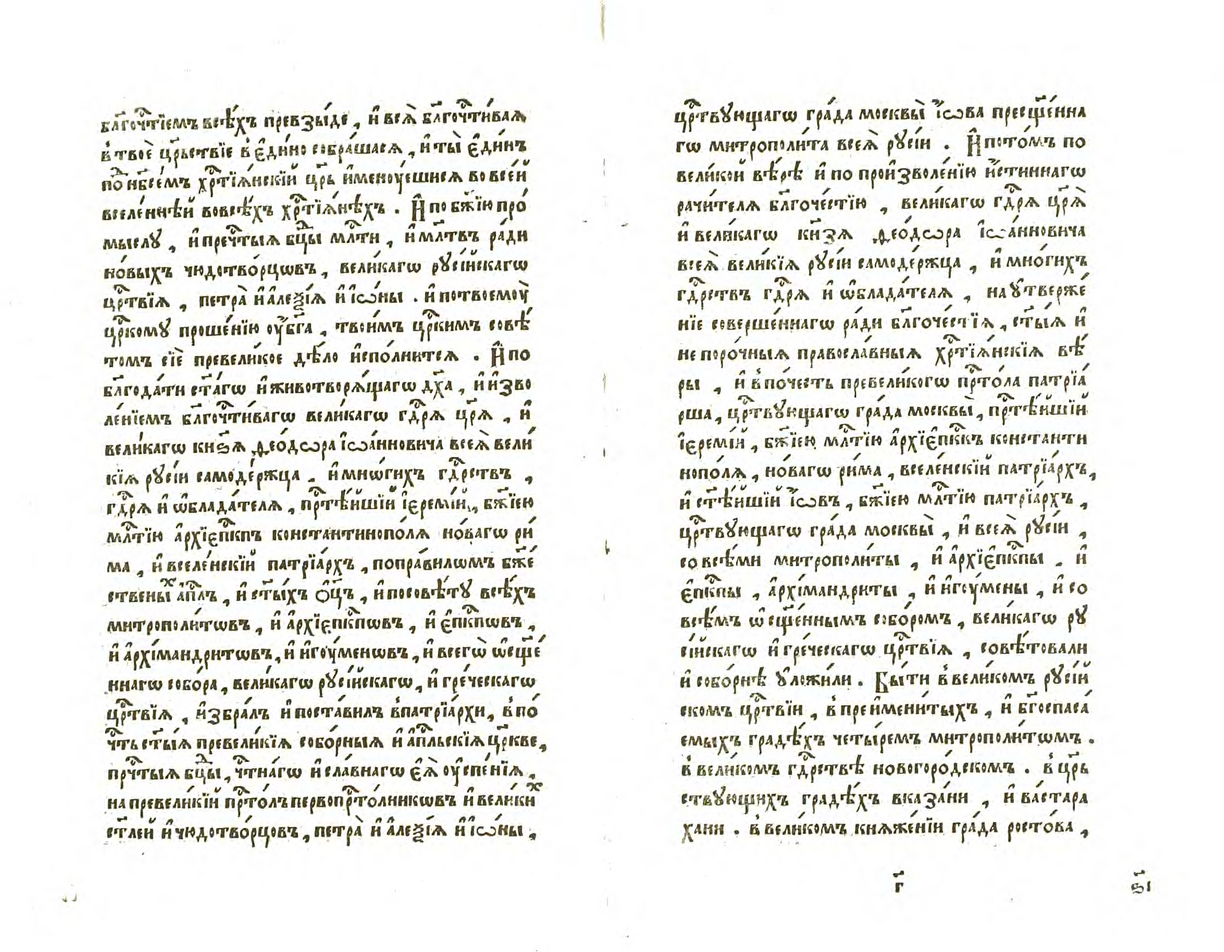 блгочⷭ҇тїемъ всѣ́хъ превзы́де , и҆ всѧ̀ блгочⷭ҇ти́ваѧ
в твоѐ црⷭ҇ьствїе в є҆ди́но собра́шасѧ , и҆ ты̀ є҆ди́нъ
по нбⷭ҇е́мъ хрⷭ҇тїѧ́нскїй цр҃ь и҆менꙋ́ешисѧ во все́й
вселе́ннѣй во всѣ́хъ хрⷭ҇тїѧ́нѣхъ . И҆ по бж҃їю про́
мыслꙋ , и҆ пречⷭ҇тыѧ бцⷣы млⷭ҇ти , и҆ млⷮ҇въ ра́ди
но́выхъ чюдотво́рцѡвъ , вели́кагѡ рꙋсі́йскагѡ
црⷭ҇твїѧ , петра̀ и҆ а҆леѯі́ѧ и҆ і҆ѡ́ны . и҆ по твоемоу̀
црⷭ҇комꙋ проше́нїю оу҆ бг҃а , твои́мъ црⷭ҇кимъ совѣ́
томъ сїѐ превели́кое дѣ́ло и҆спо́лнитсѧ . И҆ по
благода́ти ст҃а́гѡ и҆ животворѧ́щагѡ дх҃а , и҆ и҆зво
ле́нїемъ блгочⷭ҇ти́вагѡ вели́кагѡ гдⷭ҇рѧ̀ цр҃ѧ̀ , и҆
вели́кагѡ кнѧ́ѕѧ ѳео́дѡра і҆ѡа́нновича всеѧ̀ вели́
кїѧ рꙋсі́и самоде́ржца . и҆ мнѡ́гихъ гдⷭ҇рствъ ,
гдⷭ҇рѧ̀ и҆ ѡ҆блада́телѧ , прⷭ҇тѣ́йшїй і҆ереміѝ , бж҃їею
млⷭ҇тїю а҆рхїе҆пⷭ҇кпъ константинопо́лѧ но́вагѡ ри́
ма , и҆ вселе́нскїй патрїа́рхъ , по пра́вилѡмъ бж҃е́
ственыⷯ а҆пⷭ҇лъ , и҆ ст҃ы́хъ ѻ҆ц҃ъ , и҆ посовѣ́тꙋ всѣ́хъ
митрополи́тѡвъ , и҆ а҆рхїе҆пⷭ҇кпѡвъ , и҆ є҆пⷭ҇кпѡвъ ,
и҆ а҆рхїмандри́тѡвъ , и҆ и҆гоу́менѡвъ , и҆ всегѡ̀ ѡ҆сщ҃е́
ннагѡ собо́ра , вели́кагѡ рꙋсі́йскагѡ , и҆ гре́ческагѡ
црⷭ҇твїѧ , и҆збра́лъ и҆ поста́вилъ в патрїа́рхи , в по́
чⷭ҇ть ст҃ы́ѧ превели́кїѧ собо́рныѧ и҆ а҆пⷭ҇льскїѧ цр҃кве ,
прⷱ҇тыѧ бцⷣы , чⷭ҇тна́гѡ и҆ сла́внагѡ є҆ѧ̀ оу҆спе́нїѧ ,
на превели́кїй прⷭ҇то́лъ первопрⷭ҇то́лникѡвъ и҆ вели́киⷯ
ст҃ле́й и҆ чюдотво́рцовъ , петра̀ и҆ а҆леѯі́ѧ и҆ і҆ѡ́ны ,
црⷭ҇твꙋющагѡ гра́да москвы̀ і҆́ѡва пресщ҃е́нна
гѡ митрополи́та всеѧ̀ рꙋсі́и . И҆ пото́мъ по
вели́кой вѣ́рѣ и҆ по произволе́нїю и҆́стиннагѡ
рачи́телѧ благоче́стїю , вели́кагѡ гдⷭ҇рѧ̀ цр҃ѧ̀
и҆ вели́кагѡ кнѧ́зѧ ѳео́дѡра і҆ѡа́нновича
всеѧ̀ вели́кїѧ рꙋсі́и самоде́ржца , и҆ мно́гихъ
гдⷭ҇рствъ гдⷭ҇рѧ̀ и҆ ѡ҆блада́телѧ , на оу҆тверже́
нїе соверше́ннагѡ ра́ди благоче́стїѧ , ст҃ы́ѧ и҆
непоро́чныѧ правосла́вныѧ хрⷭ҇тїѧ́нскїѧ вѣ́
ры , и҆ в по́честь превели́когѡ прⷭ҇то́ла патрїа́
рша , црⷭ҇твꙋющагѡ гра́да москвы̀ , прⷭ҇тѣ́йшїй
і҆ереміѝ , бж҃їею млⷭ҇тїю а҆рхїе҆пⷭ҇кпъ константи
нопо́лѧ , но́вагѡ ри́ма , вселе́нскїй патрїа́рхъ ,
и҆ ст҃ѣ́йшїй і҆́ѡвъ , бж҃їею млⷭ҇тїю патрїа́рхъ ,
црⷭ҇твꙋющагѡ гра́да москвы̀ , и҆ всеѧ̀ рꙋсі́и ,
со всѣ́ми митрополи́ты , и҆ а҆рхїе҆пⷭ҇кпы . и҆
є҆пⷭ҇кпы , а҆рхїмандри́ты , и҆ и҆гꙋ́мены , и҆ со
всѣ́мъ ѡ҆сщ҃е́ннымъ собо́ромъ , вели́кагѡ рꙋ
сі́йскагѡ и҆ гре́ческагѡ црⷭ҇твїѧ , совѣ́товали
и҆ собо́рнѣ оу҆ложи́ли . Бы́ти в вели́комъ рꙋсі́й
скомъ црⷭ҇твїи , в преименитыхъ , и҆ бг҃оспаса́
емыхъ градѣ́хъ четы́ремъ митрополи́тѡмъ .
в вели́комъ гдⷭ҇рствѣ новогоро́дскомъ . в црⷭ҇ь
ствꙋющихъ градѣ́хъ в каза́ни , и҆ в а́стара
хани . в вели́комъ кнѧже́нїи гра́да росто́ва ,
г҃
ѕ҃і